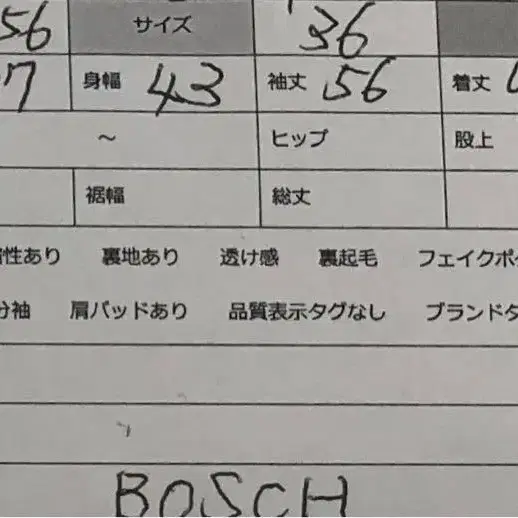 56 サイズ 36
7 身幅 43 袖丈 56 着丈
～ ヒップ 股上
裾幅 総丈
性あり 裏地あり 透け感 裏起毛 フェイクポ
分袖 肩パッドあり 品質表示タグなし ブランドタ
BOSCH